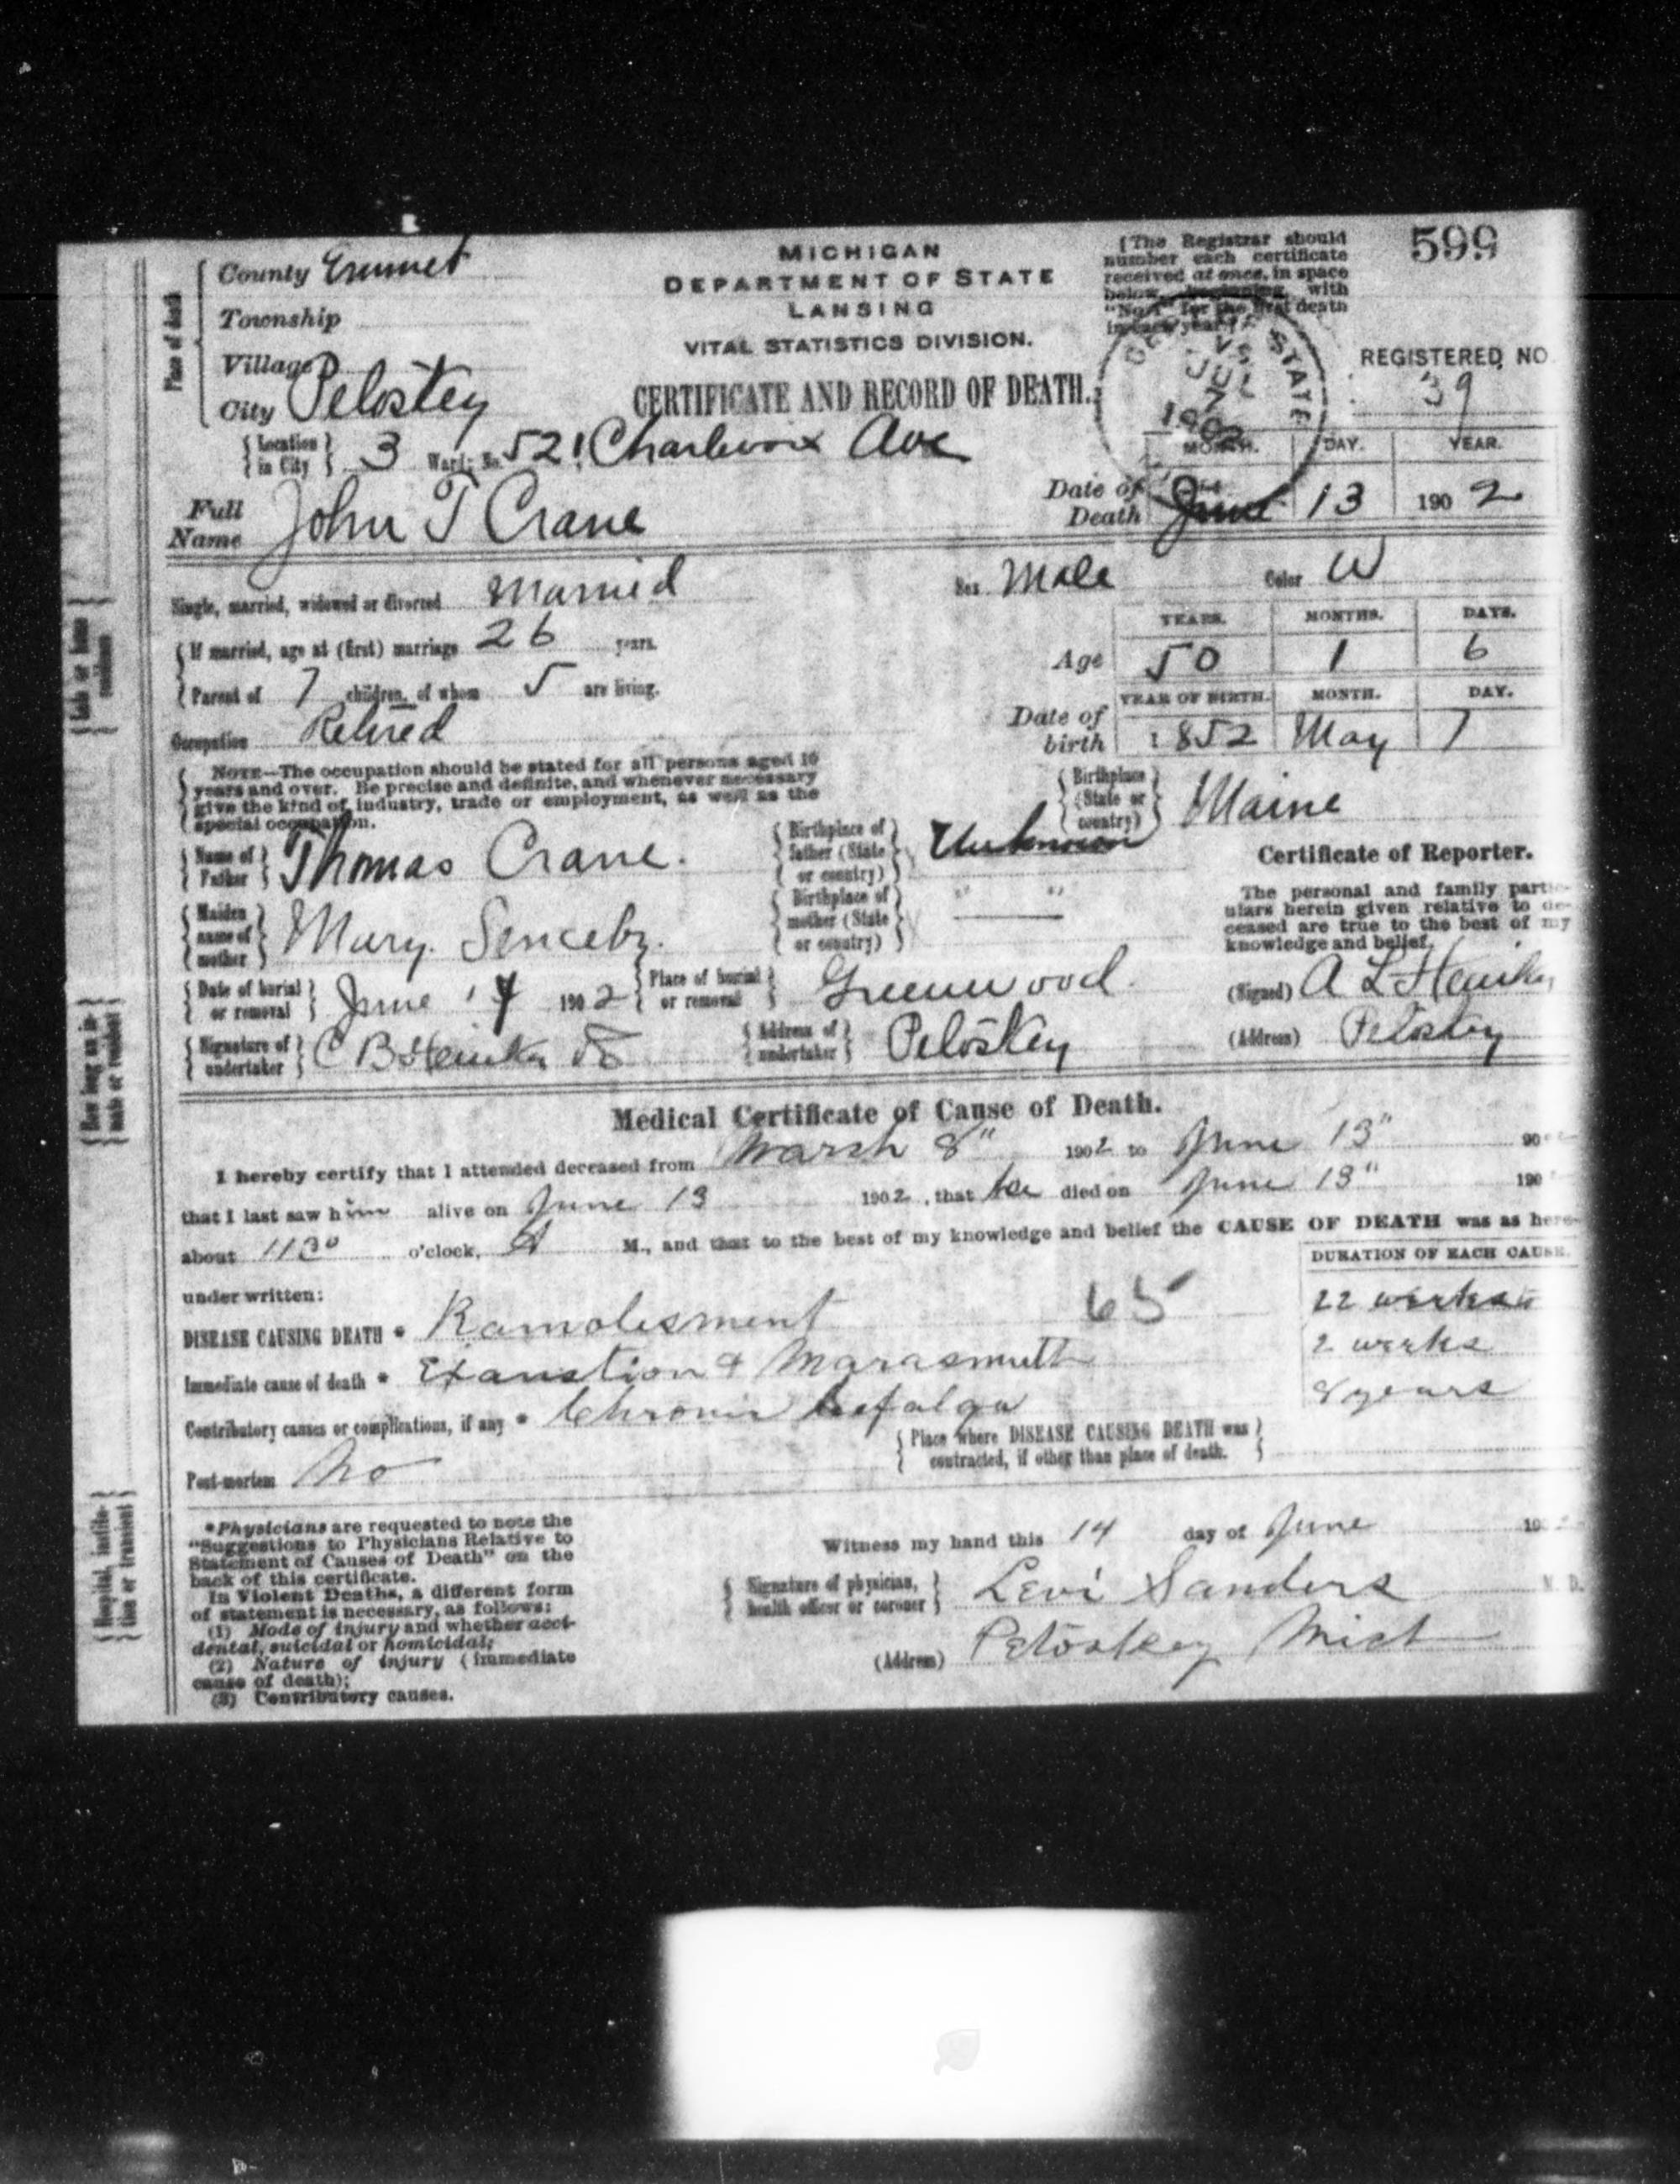 599
County Emmet
MICHIGAN
DEPARTMENT OF STATE
LANSING
VITAL STATISTICS DIVISION.
(The Registrar should
number each certificate
received at once, in space
below, beginning with
"No. 1" for the first death
in each year.)
Place of death
Township
Village
City Petoskey
CERTIFICATE AND RECORD OF DEATH.
STATE
JUL
7
1902
REGISTERED NO
39
Location in City 3 Ward; No. 521 Charlevoix Ave
Full Name John T Crane
Date of Death
MONTH. DAY. YEAR.
June 13 1902
Single, married, widowed or divorced Married
Sex Male Color W
If married, age at (first) marriage 26 years.
Parent of 7 children, of whom 5 are living.
Age
YEARS. MONTHS. DAYS.
50 1 6
Occupation Retired
Date of birth
YEAR OF BIRTH. MONTH. DAY.
1852 May 7
NOTE—The occupation should be stated for all persons aged 10
years and over. Be precise and definite, and whenever necessary
give the kind of industry, trade or employment, as well as the
special occupation.
Birthplace (State or country) Maine
Name of Father Thomas Crane.
Birthplace of father (State or country) Unknown
Maiden name of mother Mary.
Birthplace of mother (State or country) " "
Certificate of Reporter.
The personal and family partic-
ulars herein given relative to de-
ceased are true to the best of my
knowledge and belief.
Date of burial or removal June 1902
Place of burial or removal Greenwood.
(Signed) A L
Signature of undertaker C B
Address of undertaker Petoskey
(Address) Petoskey
Medical Certificate of Cause of Death.
I hereby certify that I attended deceased from March 8" 1902 to June 13" 190
that I last saw him alive on June 13 1902, that he died on June 13" 190
about 1130 o'clock, A M., and that to the best of my knowledge and belief the CAUSE OF DEATH was as here-
under written:
DURATION OF EACH CAUSE.
DISEASE CAUSING DEATH * Ramolesment 65
22 weeks
Immediate cause of death * Exaustion &
2 weeks
Contributory causes or complications, if any * Chronic
8 years
Place where DISEASE CAUSING DEATH was
contracted, if other than place of death.
Post-mortem No
*Physicians are requested to note the
"Suggestions to Physicians Relative to
Statement of Causes of Death" on the
back of this certificate.
In Violent Deaths, a different form
of statement is necessary, as follows:
(1) Mode of injury and whether acci-
dental, suicidal or homicidal;
(2) Nature of injury (immediate
cause of death);
(3) Contributory causes.
Witness my hand this 14 day of June 19
Signature of physician, health officer or coroner Levi Sanders M. D.
(Address) Petoskey Mich